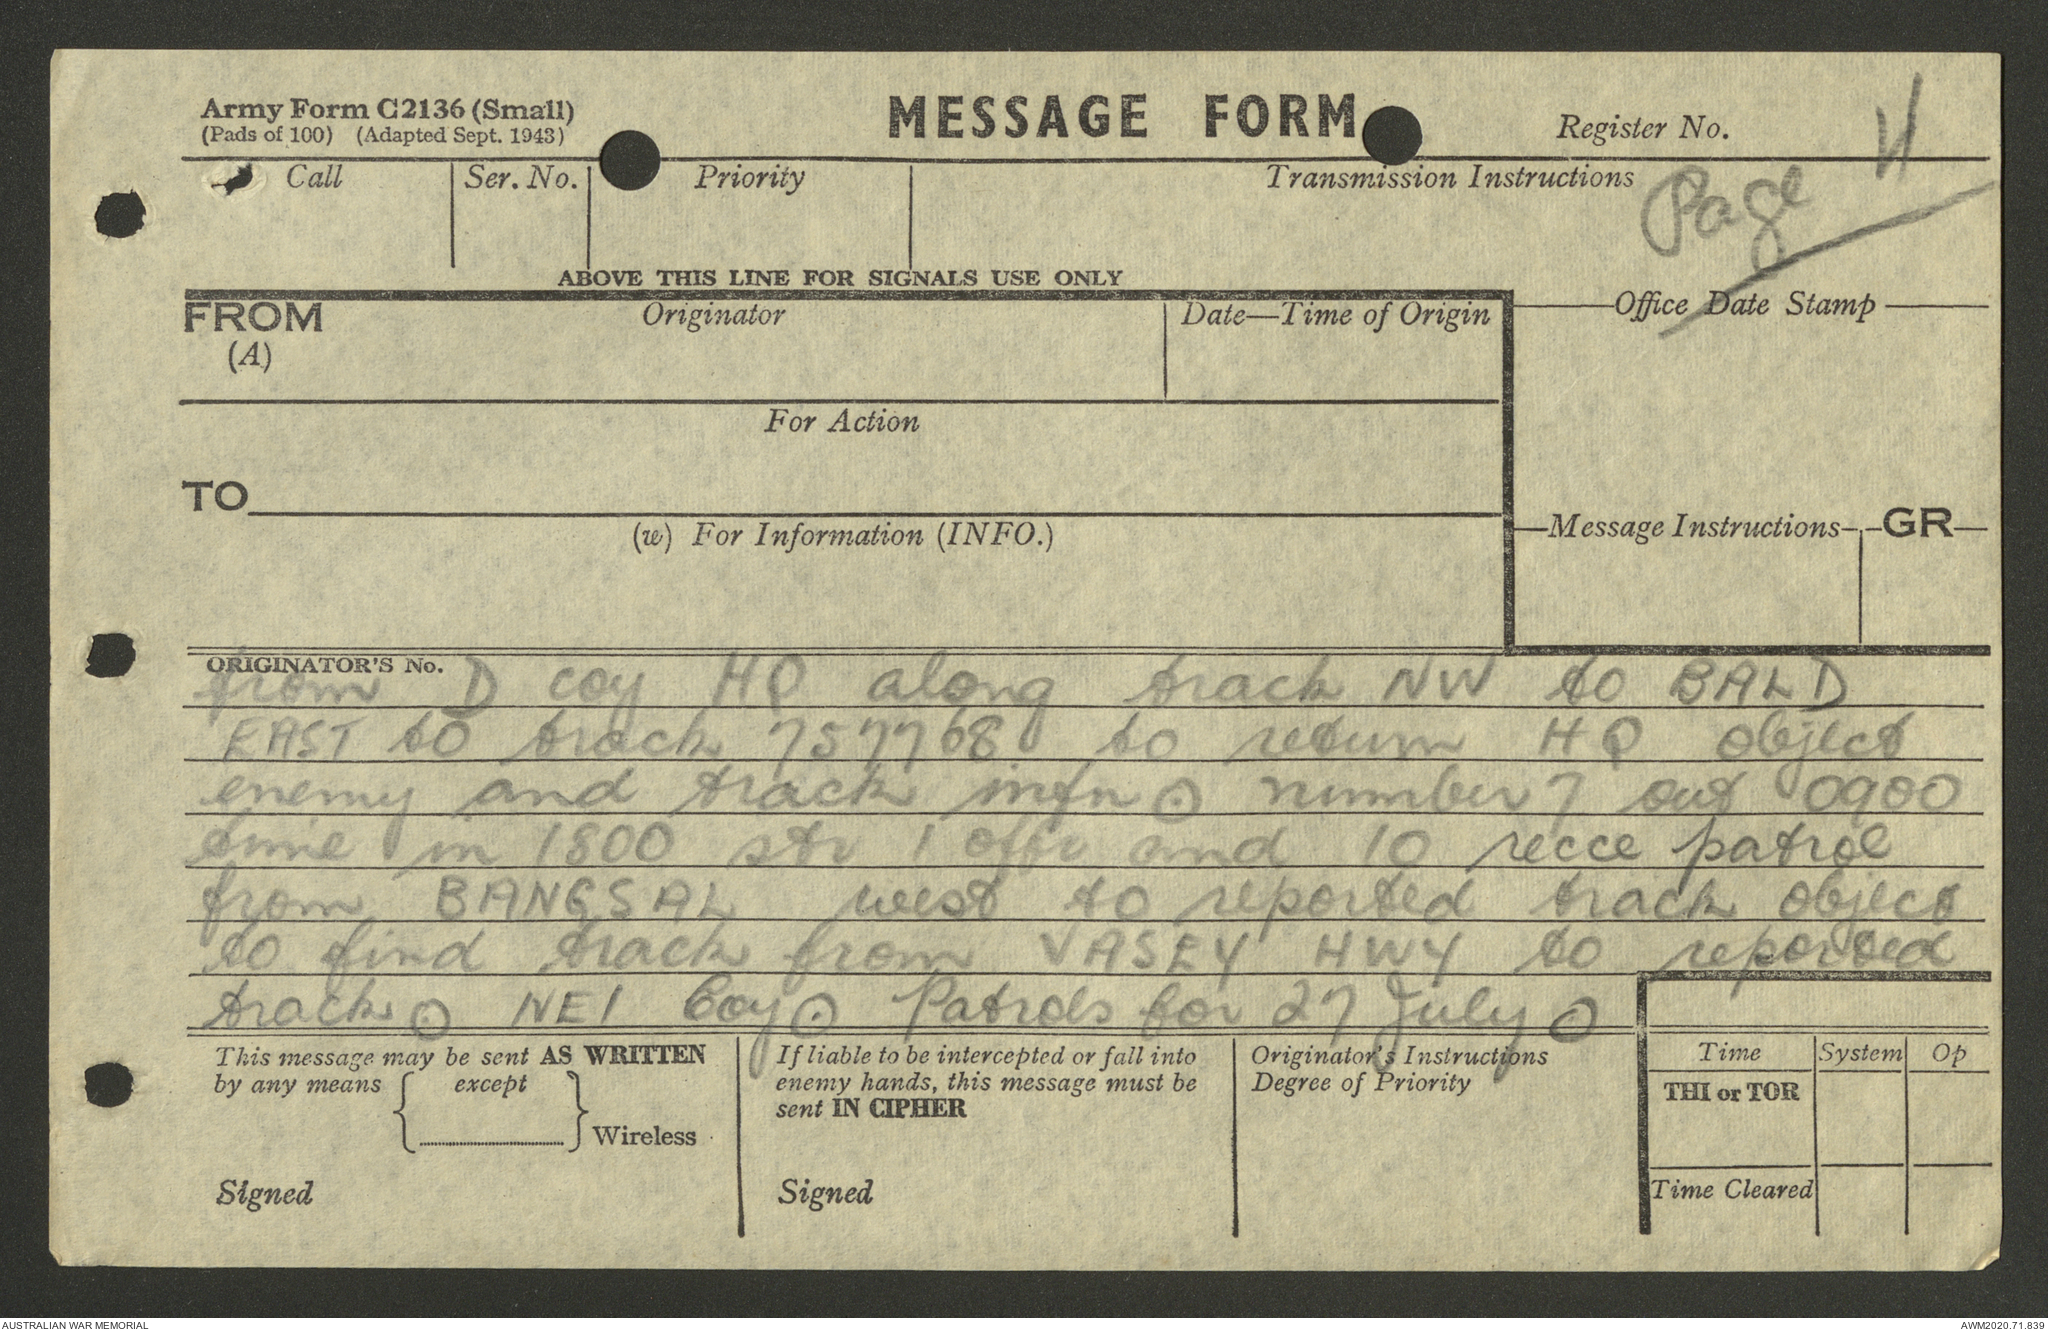 Army Form C2136 (Small)
(Pads of 100) (Adapted Sept. 1943)
MESSAGE FORM
Register No.
Page 4
Call
Ser. No.
Priority
Transmission Instructions
ABOVE THIS LINE FOR SIGNALS USE ONLY
FROM
(A)
Originator
Date—Time of Origin
Office Date Stamp
For Action
TO
(w) For Information (INFO.)
Message Instructions
GR
ORIGINATOR'S No.
from D coy HQ along track NW to BALD
EAST to track 757768 to return HQ object
enemy and track infn ⊙ number 7 out 0900
time in 1800 str 1 offr and 10 recce patrol
from BANGSAL west to reported track object
to find track from VASEY HWY to reported
track ⊙ NEI Coy ⊙ Patrols for 27 July ⊙
This message may be sent AS WRITTEN
by any means { except
} Wireless
Signed
If liable to be intercepted or fall into
enemy hands, this message must be
sent IN CIPHER
Signed
Originator's Instructions
Degree of Priority
Time
System
Op
THI or TOR
Time Cleared
AUSTRALIAN WAR MEMORIAL
AWM2020.71.839